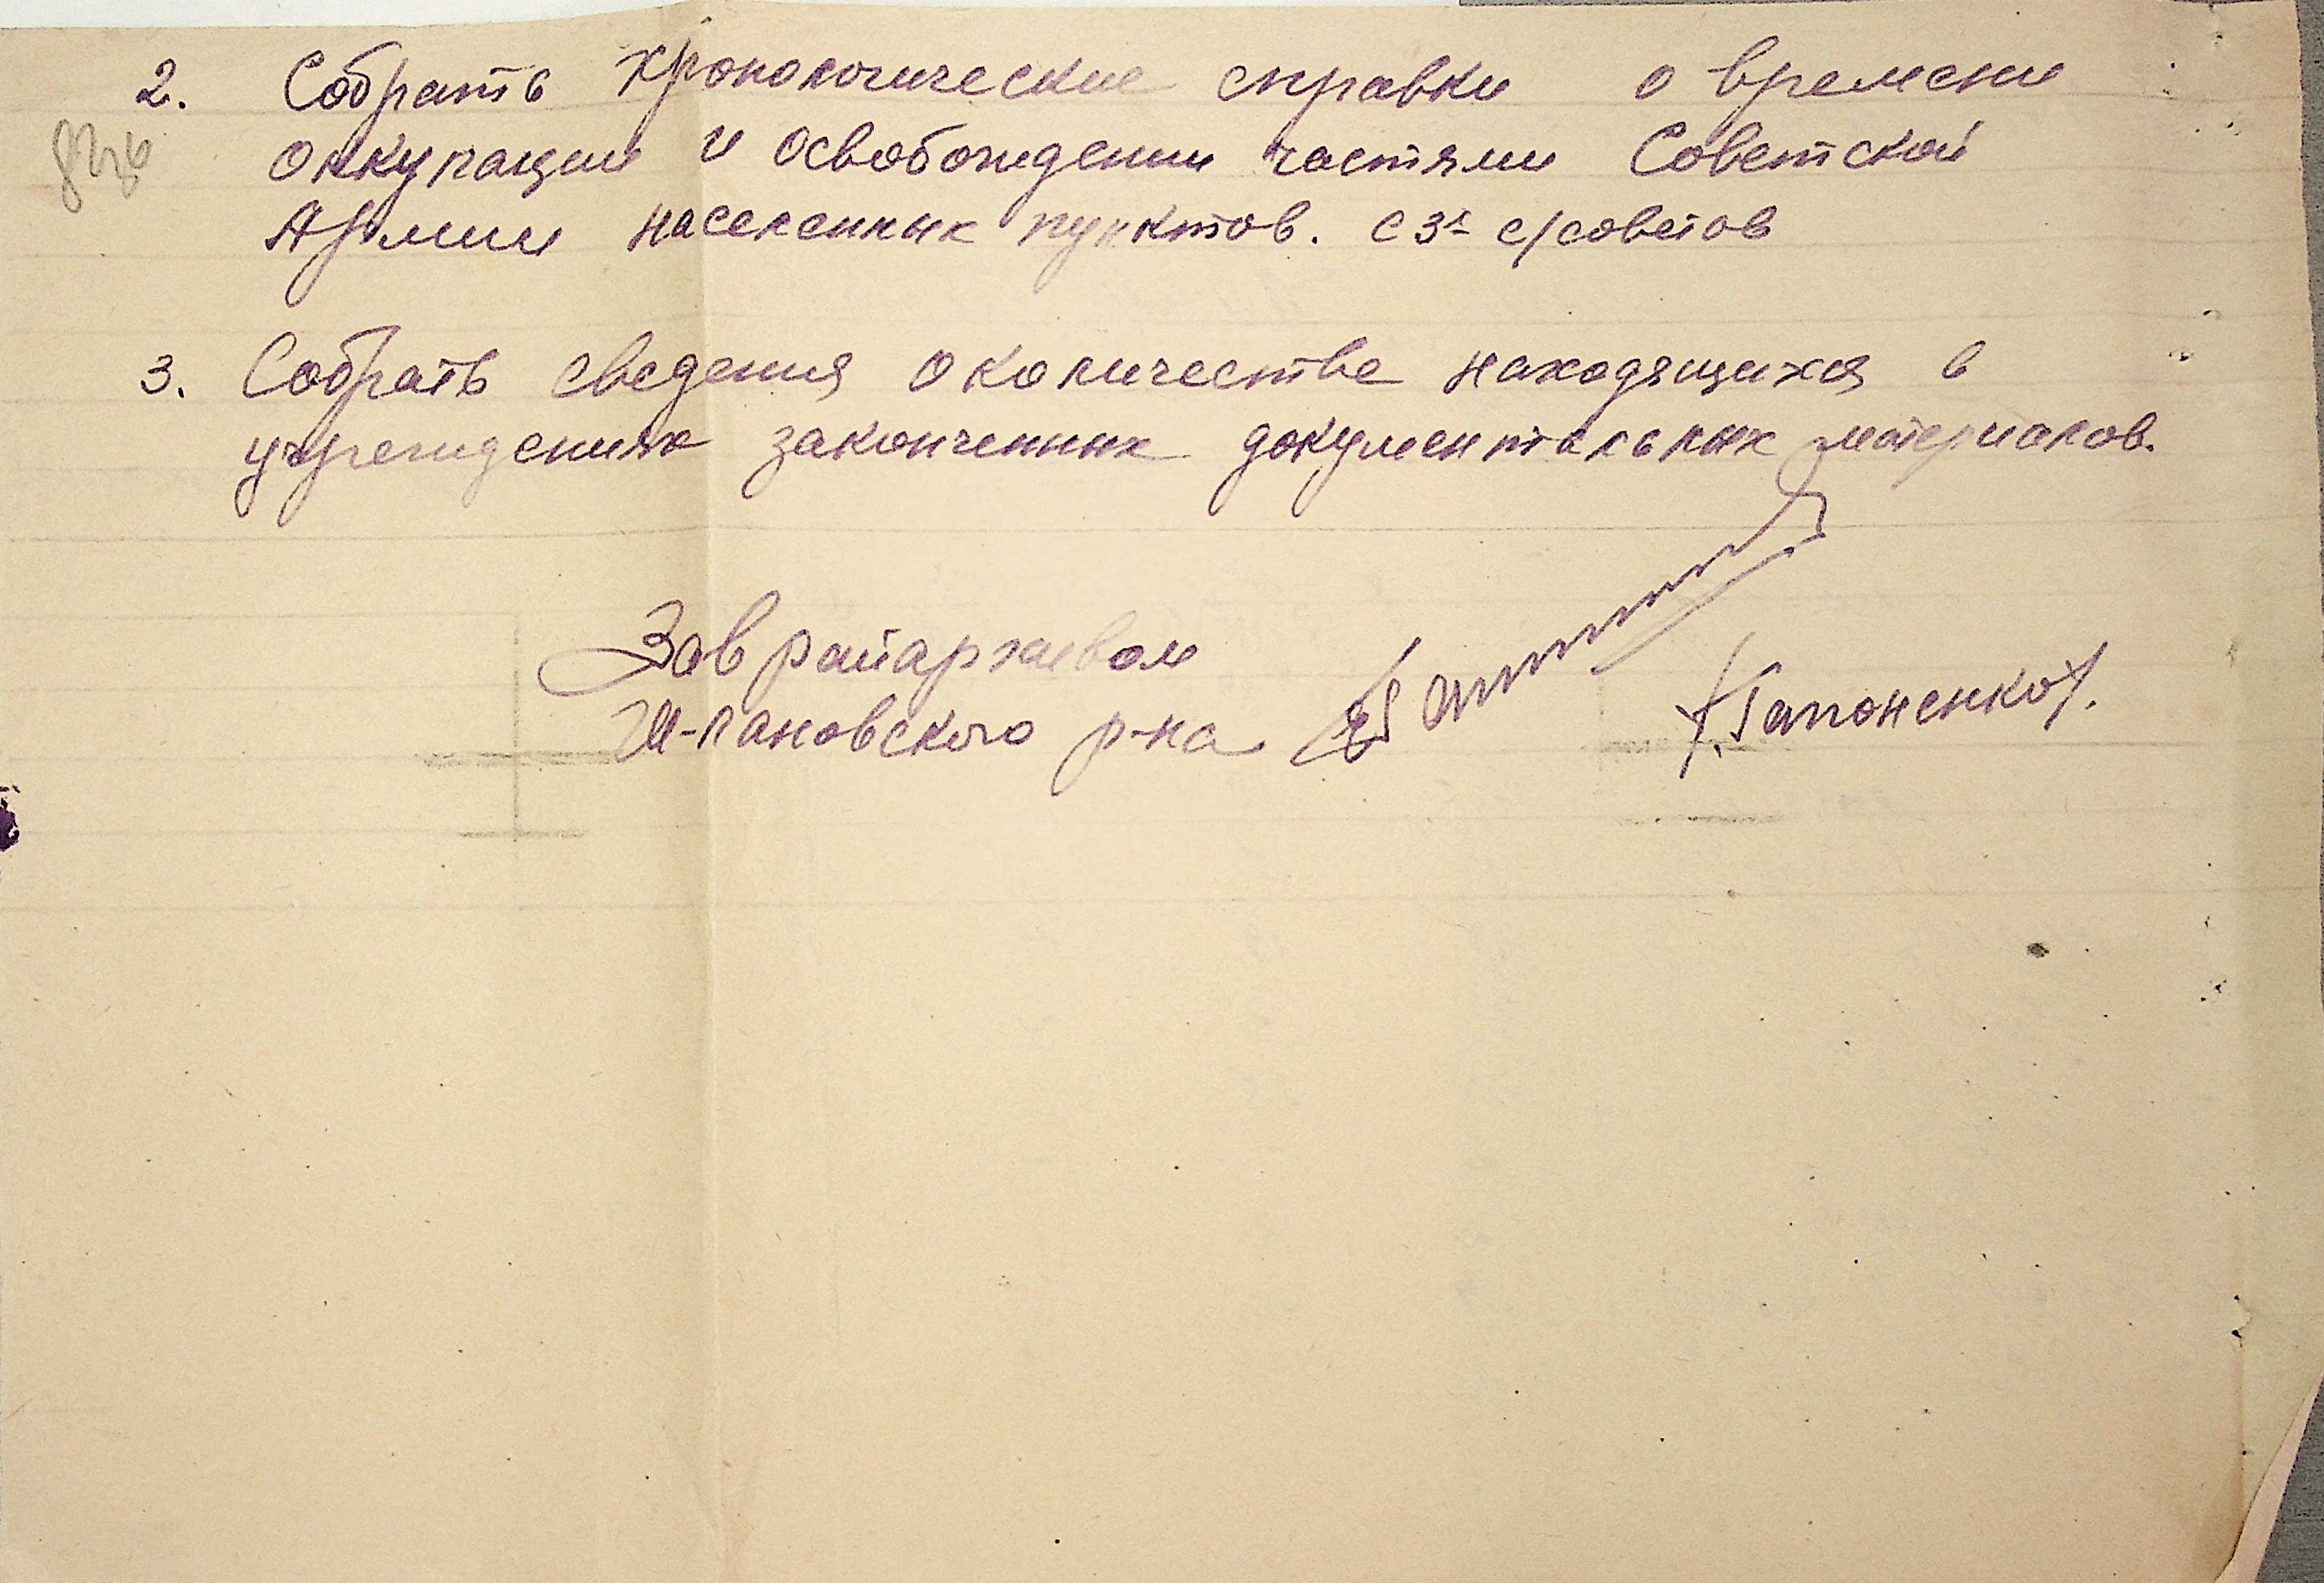 2. Собрать хронологические справки о времени
оккупации и освобождении частями Советской
Армии населенных пунктов. с 3х с/советов
3. Собрать сведения о количестве находящихся в
учреждениях законченных документальных материалов.
Зав райархивом
Ш-лановского р-на /Гапоненко/.